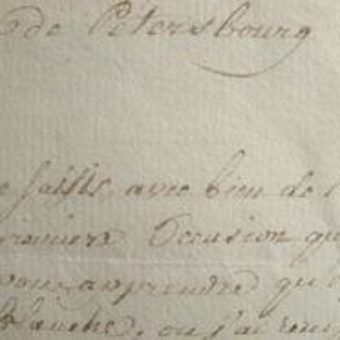 de Petersbourg
saisis, avec bien de
premiere Occasion qu
vous apprendre qu
blanche, ou j'ai